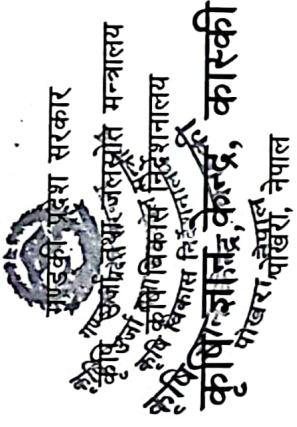 गण्डकी प्रदेश सरकार
कृषि ऊर्जा तथा जलस्रोत मन्त्रालय
कृषि विकास निर्देशनालय
कृषि ज्ञान केन्द्र, कास्की
पोखरा, नेपाल